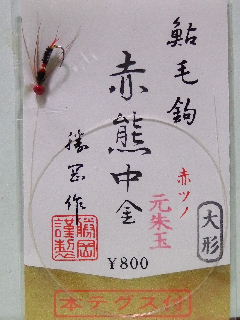 鮎毛鉤
赤熊中金
赤ツノ
元朱玉
大形
勝岡作
勝岡謹製
¥800
本テグス付